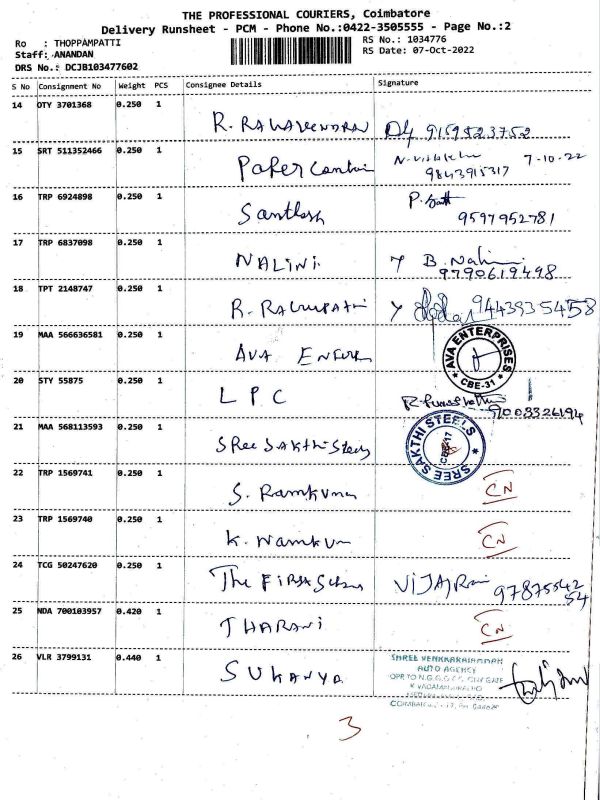 THE PROFESSIONAL COURIERS, Coimbatore
Delivery Runsheet - PCM - Phone No.:0422-3505555 - Page No.:2
Ro : THOPPAMPATTI
RS No.: 1034776
Staff: ANANDAN
RS Date: 07-Oct-2022
DRS No.: DCJB103477602
S No Consignment No Weight PCS Consignee Details Signature
14 OTY 3701368 0.250 1
9159523752
15 SRT 511352466 0.250 1
7-10-22
Paper 9843915317
16 TRP 6924898 0.250 1
Santhosh 9597952781
17 TRP 6837098 0.250 1
NALINI B. Nalini
9790619498
18 TPT 2148747 0.250 1
R. 9443935458
19 MAA 566636581 0.250 1
AVA AVA ENTERPRISES
CBE-31
20 STY 55875 0.250 1
LPC 9003326194
21 MAA 568113593 0.250 1
Sree Sakthi Steels SREE SAKTHI STEELS
22 TRP 1569741 0.250 1
S. Ramkumar CN
23 TRP 1569740 0.250 1
K. CN
24 TCG 50247620 0.250 1
The 97875542
54
25 NDA 700103957 0.420 1
THARANI CN
26 VLR 3799131 0.440 1
SUKANYA AUTO AGENCY
3